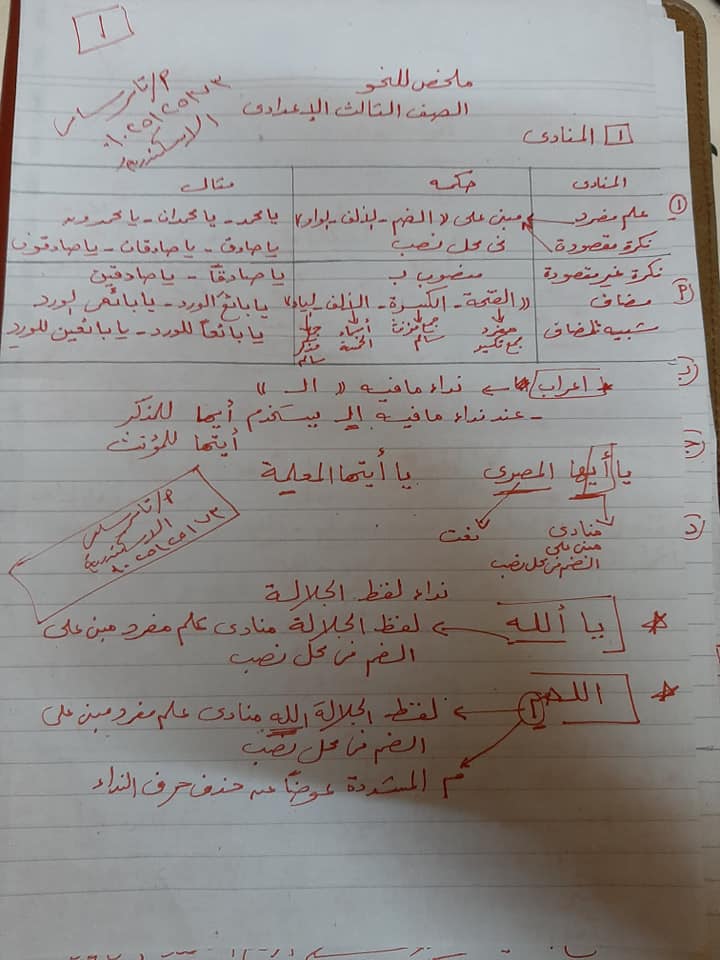 ١
ملخص للنحو
الصف الثالث الإعدادى
م/ تامر
الاسكندرية
١ المنادى
المنادى حكمه مثال
١ علم مفرد مبنى على « الضم - الألف - الواو » يا محمد - يا محمدان - يا محمدون
نكرة مقصودة فى محل نصب يا صادق - يا صادقان - يا صادقون
نكرة غير مقصودة منصوب ب يا صادقاً - يا صادقين
مضاف « الفتحة - الكسرة - الألف - الياء » يا بائع الورد - يا بائعى الورد
شبيه بالمضاف يا بائعاً للورد - يا بائعين للورد
مفرد جمع تكسير
جمع مؤنث سالم
أسماء الخمسة
جمع مذكر سالم
ب) * إعراب * نداء ما فيه « الـ »
- عند نداء ما فيه الـ يستخدم أيها للمذكر
أيتها للمؤنث
ج) يا أيها المصرى يا أيتها المعلمة
منادى مبنى على الضم فى محل نصب
نعت
م/ تامر
الاسكندرية
د) نداء لفظ الجلالة
* يا ألله لفظ الجلالة منادى علم مفرد مبنى على
الضم فى محل نصب
* اللهم لفظ الجلالة الله منادى علم مفرد مبنى على
الضم فى محل نصب
م المشددة عوضاً عن حذف حرف النداء